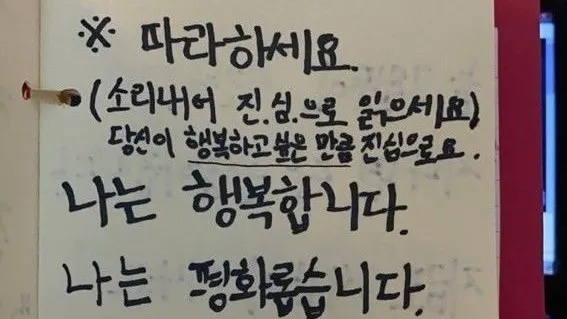 ※ 따라하세요.
(소리내어 진.심.으로 읽으세요)
당신이 행복하고 싶은 만큼 진심으로요.
나는 행복합니다.
나는 평화롭습니다.